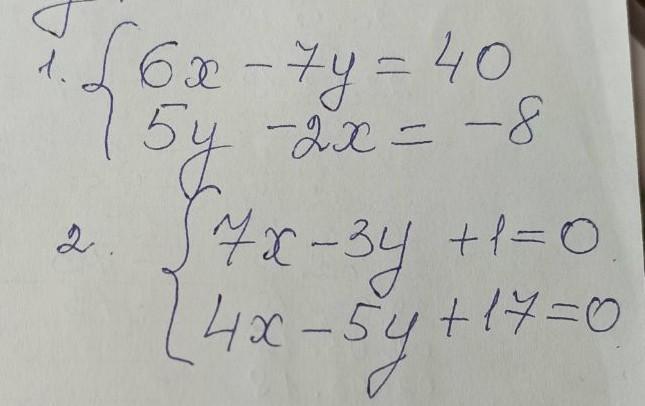 1. { 6x - 7y = 40
5y - 2x = -8
2. { 7x - 3y + 1 = 0
4x - 5y + 17 = 0